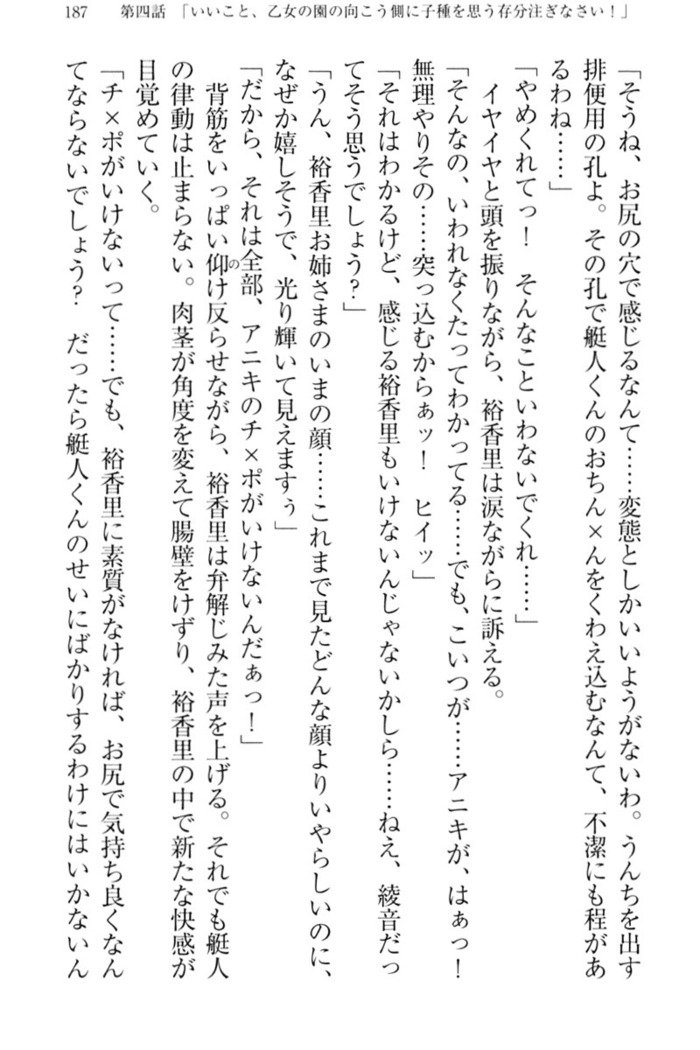 187　第四話　「いいこと、乙女の園の向こう側に子種を思う存分注ぎなさい！」
「そうね、お尻の穴で感じるなんて……変態としかいいようがないわ。うんちを出す
排便用の孔よ。その孔で艇人くんのおちん×んをくわえ込むなんて、不潔にも程があ
るわね……」
「やめくれてっ！　そんなこといわないでくれ……」
イヤイヤと頭を振りながら、裕香里は涙ながらに訴える。
「そんなの、いわれなくたってわかってる……でも、こいつが……アニキが、はぁっ！
無理やりその……突っ込むからぁッ！　ヒイッ」
「それはわかるけど、感じる裕香里もいけないんじゃないかしら……ねえ、綾音だっ
てそう思うでしょう？」
「うん、裕香里お姉さまのいまの顔……これまで見たどんな顔よりいやらしいのに、
なぜか嬉しそうで、光り輝いて見えますぅ」
「だから、それは全部、アニキのチ×ポがいけないんだぁっ！」
背筋をいっぱい仰のけ反らせながら、裕香里は弁解じみた声を上げる。それでも艇人
の律動は止まらない。肉茎が角度を変えて腸壁をけずり、裕香里の中で新たな快感が
目覚めていく。
「チ×ポがいけないって……でも、裕香里に素質がなければ、お尻で気持ち良くなん
てならないでしょう？　だったら艇人くんのせいにばかりするわけにはいかないん